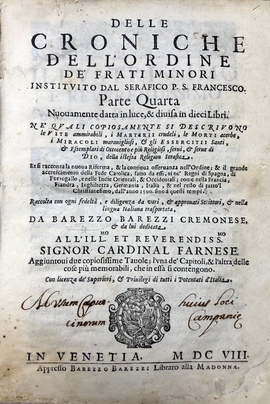 DELLE
CRONICHE
DELL'ORDINE
DE' FRATI MINORI
INSTITVITO DAL SERAFICO P. S. FRANCESCO.
Parte Quarta
Nuouamente datta in luce, & diuisa in dieci Libri.
NE' QVALI COPIOSAMENTE SI DESCRIVONO
le VITE ammirabili, i MARTIRII crudeli, le MORTI acerbe,
i MIRACOLI marauigliosi, & gli ESSERCITII Santi,
& Esemplari di Ottocento e più Religiosi, serui, & serue di
DIO, della istessa Religion Serafica.
Et si racconta la noua Riforma, & la continua osseruanza nell'Ordine; & il grande
accrescimento della Fede Catolica, fatto da essi, ne' Regni di Spagna, di
Portogallo, e nelle Indie Orientali, & Occidentali; come nella Francia,
Fiandra, Inghilterra, Germania, Italia, & nel resto di tutto'l
Christianesimo, dall'anno 1500. fino à questi tempi.
Raccolta con ogni fedeltà, e diligenza da varij, & approuati Scrittori, & nella
lingua Italiana trasportata,
DA BAREZZO BAREZZI CREMONESE,
& da lui dedicata
ALL'ILL.MO ET REVERENDISS.MO
SIGNOR CARDINAL FARNESE.
Aggiuntoui due copiosissime Tauole; l'vna de' Capitoli, & l'altra delle
cose più memorabili, che in essa si contengono.
Con licenza de' Superiori, & Priuilegi di tutti i Potentati d'Italia.
huius loci
cinorum Campanie
IN VENETIA, M DC VIII.
Appresso BAREZZO BAREZZI Libraro alla MADONNA.